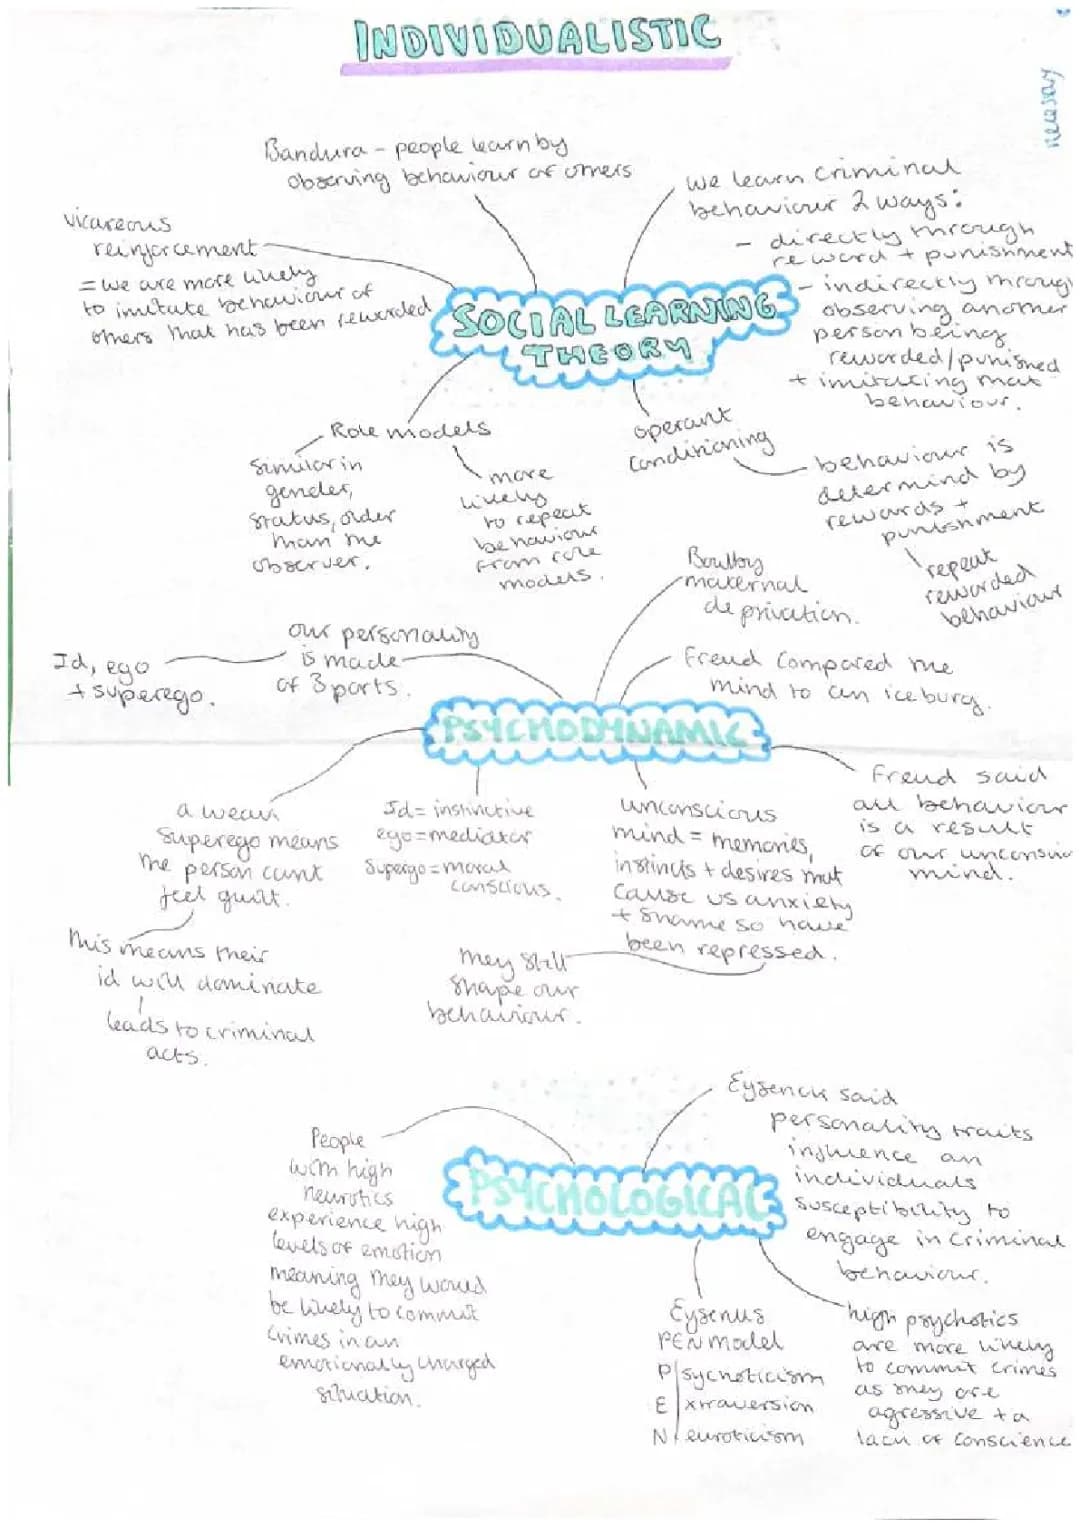 INDIVIDUALISTIC
necesary
Bandura - people learn by
observing behaviour of others
we learn criminal
behaviour 2 ways:
- directly through
reward + punishment
- indirectly throug
observing another
person being
rewarded/punished
+ imitating that
behaviour.
vicareous
reinforcement
= we are more likely
to imitate behaviour of
others that has been rewarded
SOCIAL LEARNING
THEORY
Role models
Similar in
gender,
status, older
than the
observer.
more
likely
to repeat
behaviour
from role
models.
operant
conditioning
behaviour is
determind by
rewards +
punishment
repeat
rewarded
behaviour
Boulby
maternal
deprivation.
our personality
is made
of 3 parts.
Id, ego
+ superego.
Freud compared the
mind to an iceburg.
PSYCHODYNAMIC
Freud said
all behaviour
is a result
of our unconscio
mind.
a weak
superego means
the person cant
feel guilt.
this means their
id will dominate
leads to criminal
acts.
Id = instinctive
ego = mediator
Supergo = moral
conscious.
unconscious
mind = memories,
instincts + desires that
cause us anxiety
+ shame so have
been repressed.
they still
shape our
behaviour.
Eysenck said
personality traits
influence an
individuals
susceptibility to
engage in criminal
behaviour.
People
with high
neurotics
experience high
levels of emotion
meaning they would
be likely to commit
crimes in an
emotionally charged
situation.
PSYCHOLOGICAL
Eysenks
PEN model
P|sychoticism
E|xtraversion
N|euroticism
high psychotics
are more likely
to commit crimes
as they are
agressive + a
lack of conscience